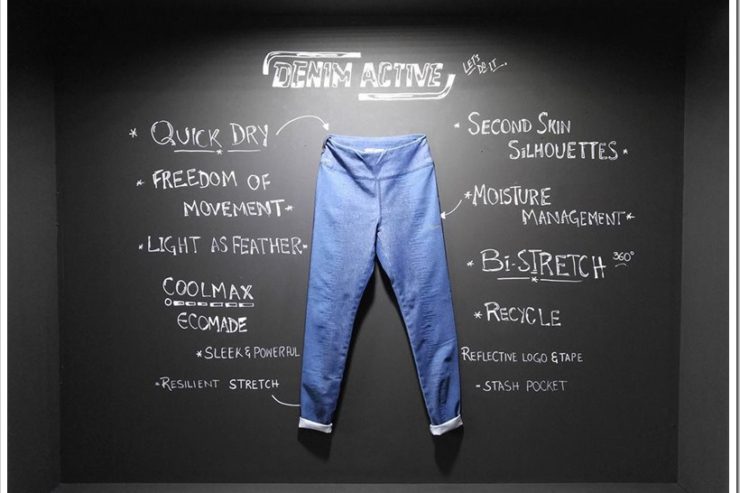 DENIM ACTIVE
LET'S
DO IT...
* QUICK DRY
* FREEDOM OF
MOVEMENT *
* LIGHT AS FEATHER *
COOLMAX
ECOMADE
* SLEEK & POWERFUL
* RESILIENT STRETCH
* SECOND SKIN
SILHOUETTES *
* MOISTURE
MANAGEMENT *
* Bi-STRETCH 360°
* RECYCLE
REFLECTIVE LOGO & TAPE
- STASH POCKET